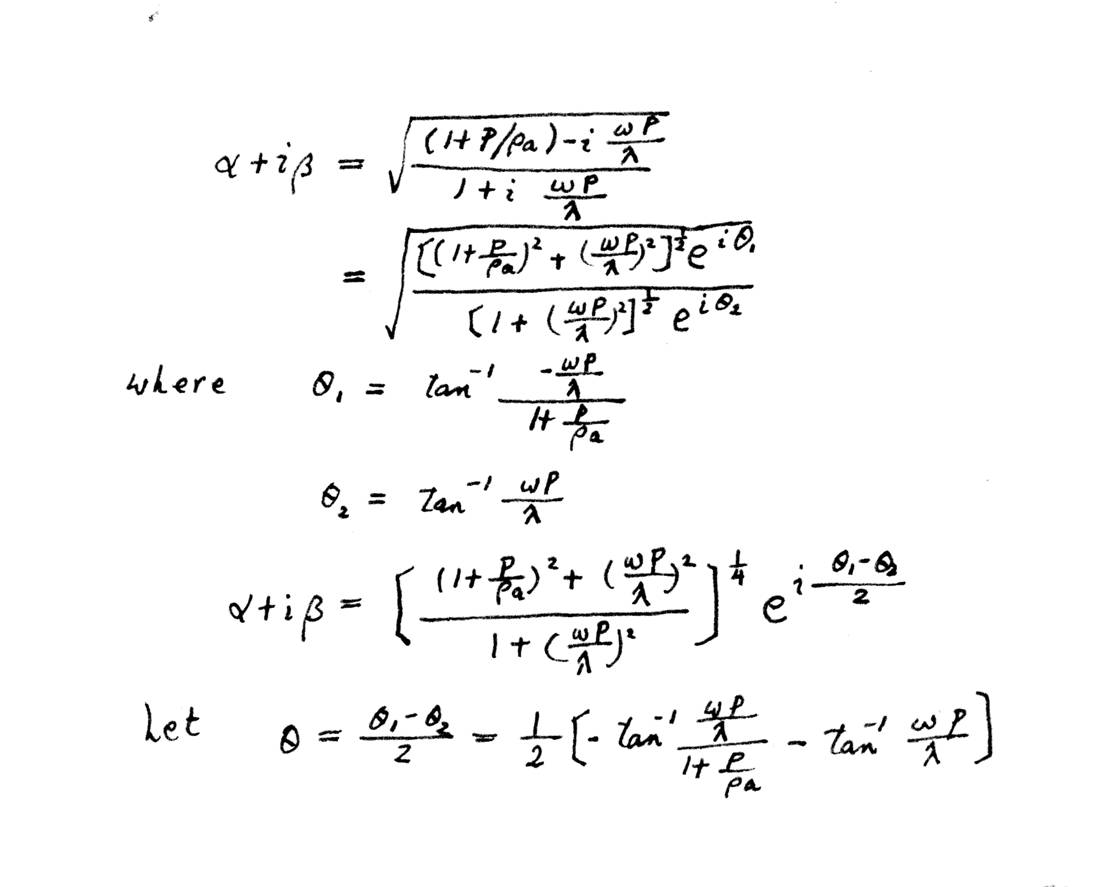 α + iβ = √( ((1 + P/ρa) - i ωP/λ) / (1 + i ωP/λ) )
= √( ([(1 + P/ρa)² + (ωP/λ)²]^½ e^{iθ₁}) / ([1 + (ωP/λ)²]^½ e^{iθ₂}) )
where θ₁ = tan⁻¹ (-ωP/λ) / (1 + P/ρa)
θ₂ = tan⁻¹ ωP/λ
α + iβ = [ ((1 + P/ρa)² + (ωP/λ)²) / (1 + (ωP/λ)²) ]^¼ e^{i (θ₁-θ₂)/2}
Let θ = (θ₁-θ₂)/2 = 1/2 [ - tan⁻¹ (ωP/λ) / (1 + P/ρa) - tan⁻¹ ωP/λ ]